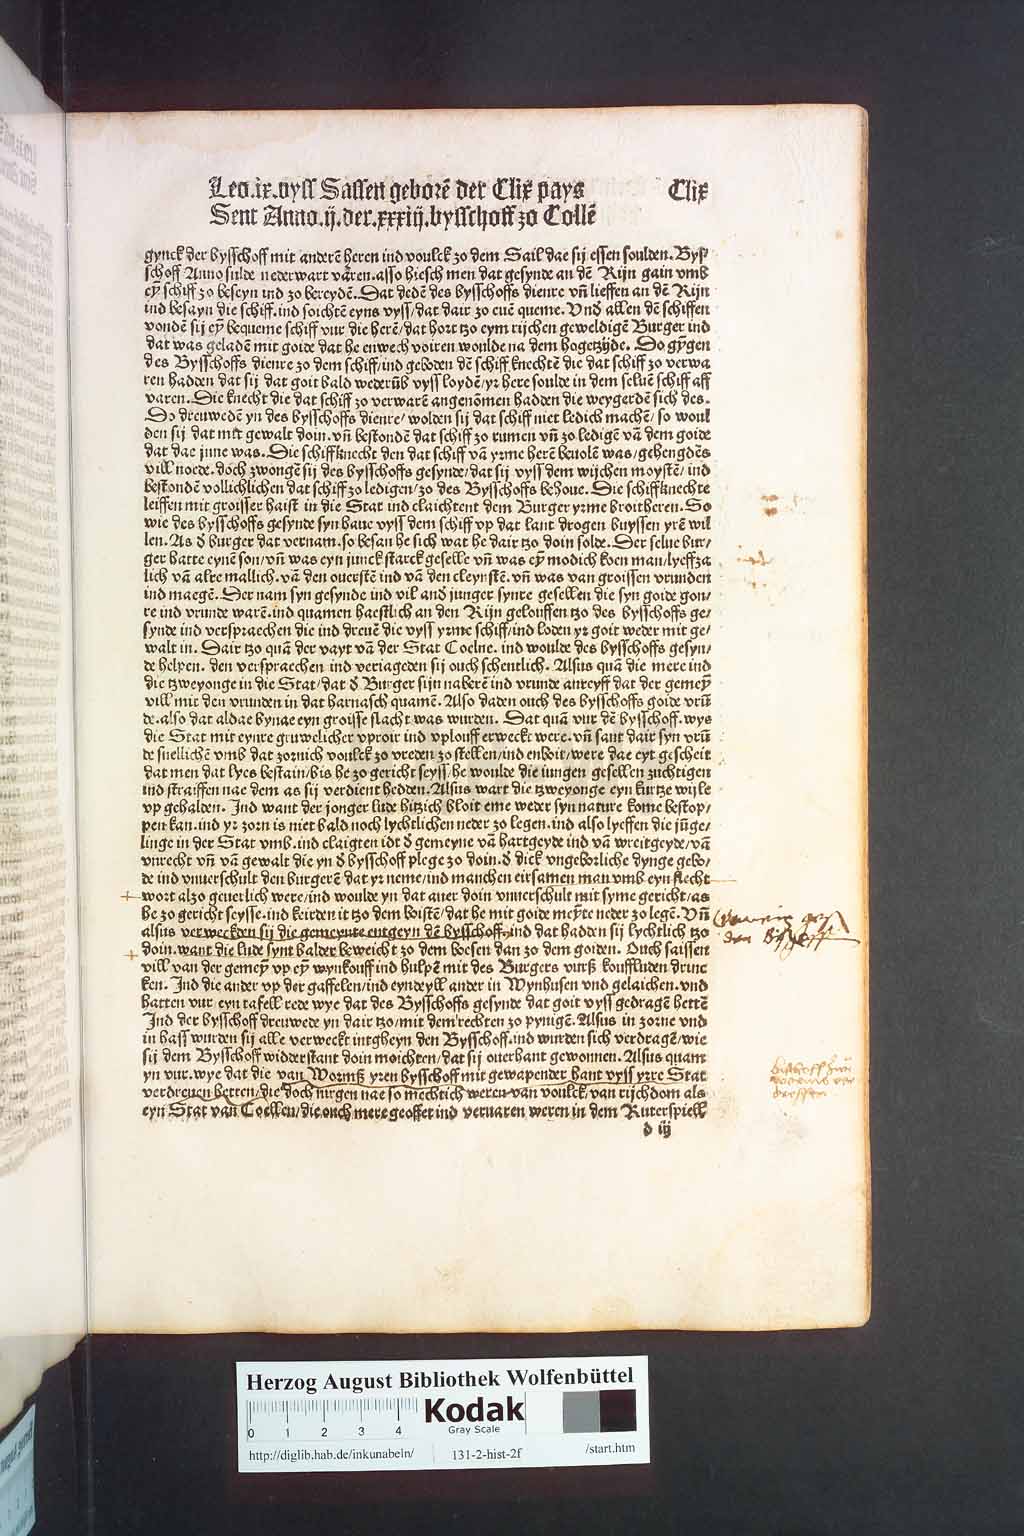 Leo.ix.vyss Sassen geborē der Clix pays Clix
Sent Anno.ij.der.xxxiij.bysschoff zo Collē
gynck der bysschoff mit anderē heren ind voulck zo dem Sail dae sij essen soulden. Bys
schoff Anno sulde nederwart varen. asso hiesch men dat gesynde an dē Rijn gain vmb
eȳ schiff zo beseyn ind zo bereydē. Dat dedē des bysschoffs dienre vn̄ lieffen an dē Rijn
ind besayn die schiff. ind soichtē eyns vyss/dat dair zo euē queme. Vnd allen dē schiffen
vondē sij eȳ bequeme schiff vur die herē/dat hort tzo eym rijchen geweldigē Burger ind
dat was geladē mit goide dat he enwech voiren woulde na dem hogetzijde. Do gȳgen
des Bysschoffs dienre zo dem schiff/ind geboden dē schiff knechtē die dat schiff zo verwa
ren hadden dat sij dat goit bald wederūb vyss loydē/yr here soulde in dem seluē schiff aff
varen. Die knecht die dat schiff zo verwarē angenōmen hadden die weygerdē sich des.
Do dreuwedē yn des bysschoffs dienre/wolden sij dat schiff niet ledich machē/so woul
den sij dat mit gewalt doin. vn̄ bestondē dat schiff zo rumen vn̄ zo ledigē vā dem goide
dat dae jnne was. Die schiffknecht den dat schiff vā yrme herē beuolē was/gehengdēs
vill noede. doch zwongē sij des bysschoffs gesynde/dat sij vyss dem wijchen moystē/ind
bestondē vollichlichen dat schiff zo ledigen/zo des Bysschoffs behoue. Die schiffknechte
leiffen mit groisser haist in die Stat ind claichtent dem Burger yrme broitheren. So
wie des bysschoffs gesynde syn haue vyss dem schiff vp dat lant drogen buyssen yrē wil
len. As d burger dat vernam. so besan he sich wat he dair tzo doin solde. Der selue bur/
ger hatte eynē son/vn̄ was eyn junck starck geselle vn̄ was eȳ modich koen man/lyeffza
lich vā alre mallich. vā den ouerstē ind vā den cleynstē. vn̄ was van groissen vrunden
ind maegē. Der nam syn gesynde ind vil and junger synre gesellen die syn goide gon/
re ind vrunde warē. ind quamen haestlich an den Rijn gelouffen tzo des bysschoffs ge/
synde ind verspraechen die ind dreuē die vyss yrme schiff/ind loden yr goit weder mit ge/
walt in. Dair tzo quā der vayt vā der Stat Coelne. ind woulde des bysschoffs gesyn/
de helpen. den verspraechen ind veriageden sij ouch schentlich. Alsus quā die mere ind
die tzweyonge in die Stat/dat d Burger sijn naberē ind vrunde anreyff dat der gemeȳ
vill mit den vrunden in dat harnasch quamē. Also daden ouch des bysschoffs goide vrū
de. also dat aldae bynae eyn groisse slacht was wurden. Dat quā vur dē bysschoff. wys
die Stat mit eynre gruwelicher vproir ind vplouff erweckt were. vn̄ sant dair syn vrū
de snellichē vmb dat zornich voulck zo vreden zo stellen/ind enboit/were dae eyt gescheit
dat men dat lyes bestain/bis he zo gericht seyss/he woulde die iungen gesellen zuchtigen
ind straiffen nae dem as sij verdient hedden. Alsus wart die tzweyonge eyn kurtze wijle
vp gehalden. Ind want der jonger lude hitzich bloit eme weder syn nature kome bestop/
pen kan. ind yr zorn is niet bald noch lychtlichen neder zo legen. ind also lyeffen die jūge/
linge in der Stat vmb. ind claigten idt d gemeyne vā hartgeyde ind vā wreitgeyde/vā
vnrecht vn̄ vā gewalt die yn d bysschoff plege zo doin. d dick vngeborliche dynge gebo/
de ind vnuerschult den burgerē dat yr neme/ind manchen eirsamen man vmb eyn slecht
wort also geuerlich were/ind woulde yn dat auer doin vnuerschult mit syme gericht/as
he zo gericht seysse. ind keirden it tzo dem boistē/dat he mit goide meȳte neder zo legē. Vn̄
alsus verweckden sij die gemeynte entgeyn dē bysschoff. ind dat hadden sij lychtlich tzo
doin. want die lude synt balder beweicht zo dem boesen dan zo dem goiden. Ouch saissen
vill van der gemeȳ vp eȳ wynkouff ind hulpē mit des Burgers vurss kouffluden drinc
ken. Ind die ander vp der gaffelen/ind eyndeyll ander in Wynhusen vnd gelaichen. vnd
hatten vur eyn tafell rede wye dat des Bysschoffs gesynde dat goit vyss gedragē hettē
Ind der bysschoff dreuwede yn dair tzo/mit dem rechten zo pynigē. Alsus in zorne vnd
in hass wurden sij alle verweckt intgheyn den Bysschoff. ind wurden sich verdragē/wie
sij dem Bysschoff widderstant doin moichten/dat sij ouerhant gewonnen. Alsus quam
yn vur. wye dat die van Wormss yren bysschoff mit gewapender hant vyss yrre Stat
verdreuen hetten/die doch nirgen nae so mechtich weren van voulck/van rijchdom als
eyn Stat van Coellen/die ouch mere geoffet ind veruaren weren in dem Ruterspiell
d iij
Herzog August Bibliothek Wolfenbüttel
0 1 2 3 4
Kodak
Gray Scale
http://diglib.hab.de/inkunabeln/ 131-2-hist-2f /start.htm